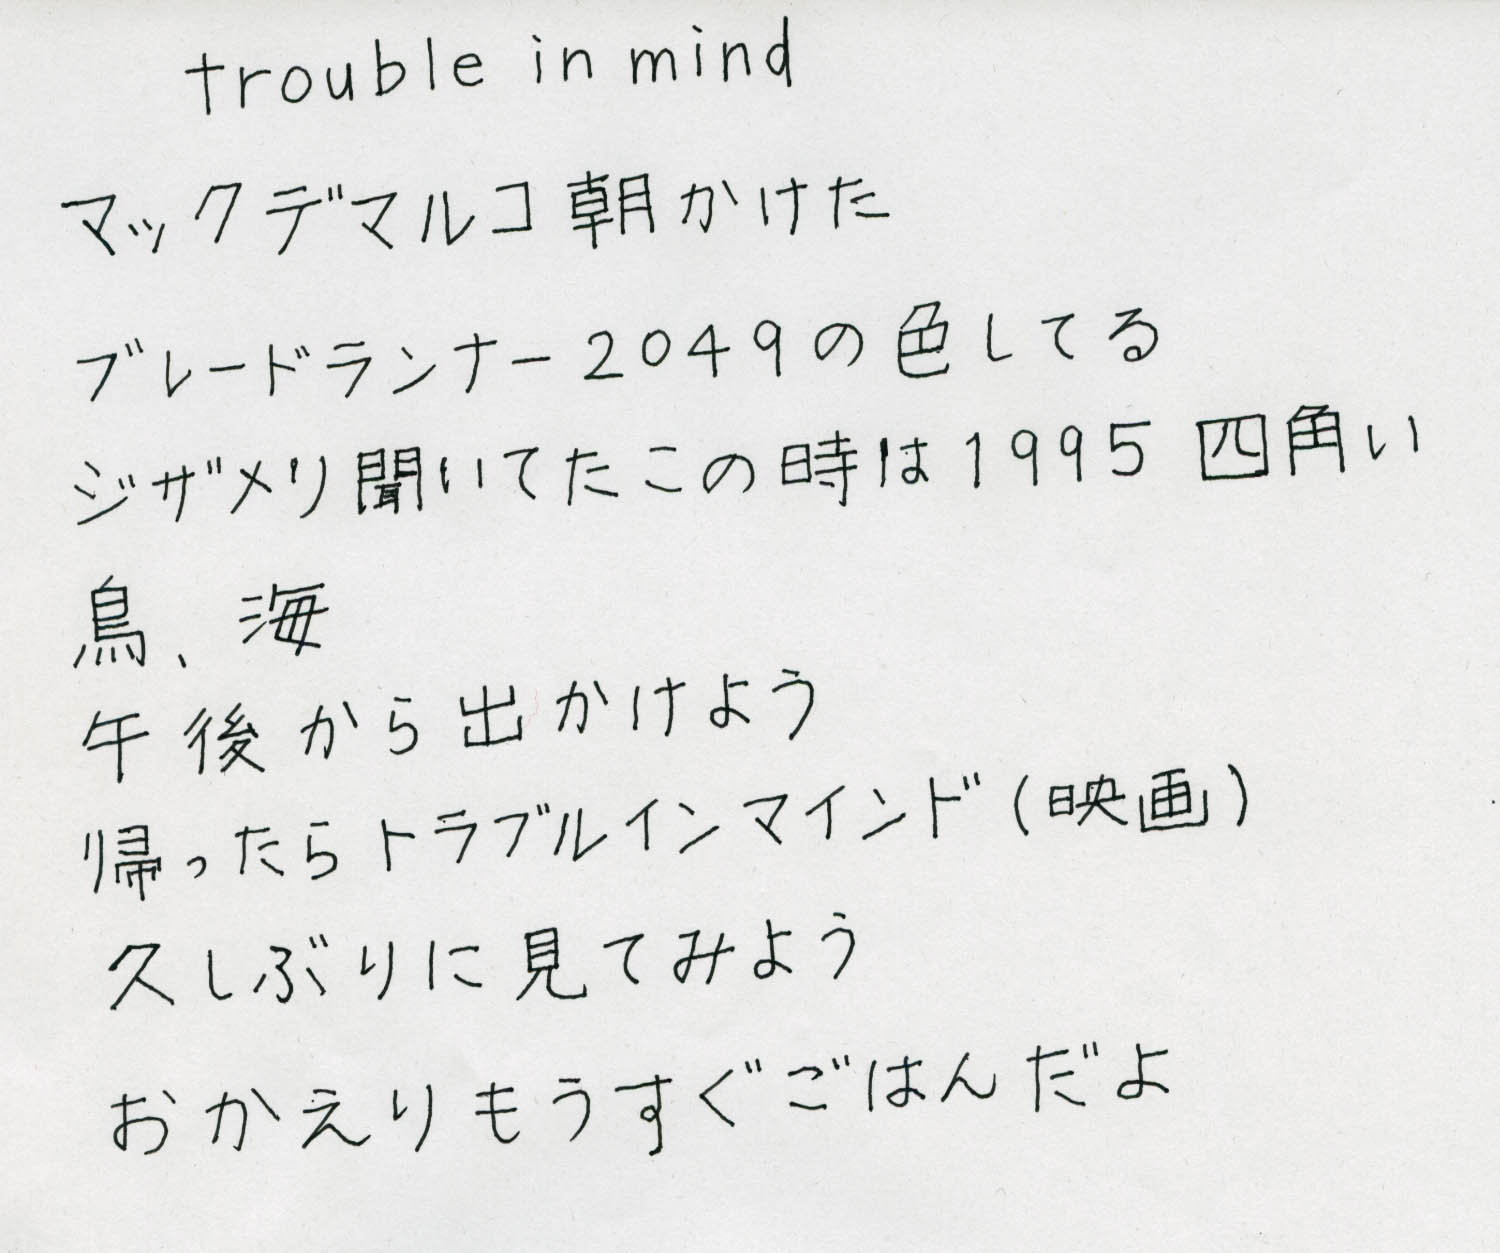 trouble in mind
マックデマルコ朝かけた
ブレードランナー2049の色してる
ジザメリ聞いてたこの時は1995 四角い
鳥、海
午後から出かけよう
帰ったらトラブルインマインド(映画)
久しぶりに見てみよう
おかえりもうすぐごはんだよ